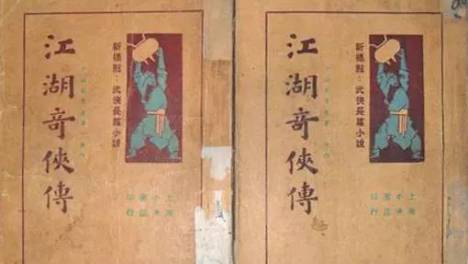 新標點:武俠長篇小說
江湖奇俠傳
新標點:武俠長篇小說
江湖奇俠傳